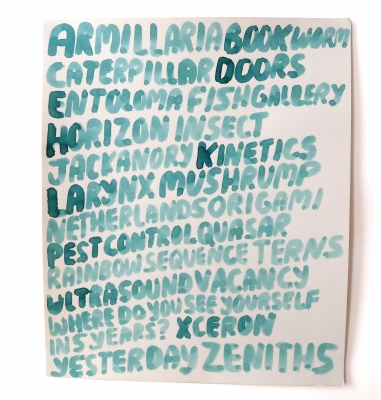 ARMILLARIA BOOKWORM
CATERPILLAR DOORS
ENTOLOMA FISH GALLERY
HORIZON INSECT
JACKANORY KINETICS
LARYNX MUSHRUMP
NETHERLANDS ORIGAMI
PEST CONTROL QUASAR
RAINBOW SEQUENCE TERNS
ULTRASOUND VACANCY
WHERE DO YOU SEE YOURSELF
IN 5 YEARS? XCERON
YESTERDAY ZENITHS